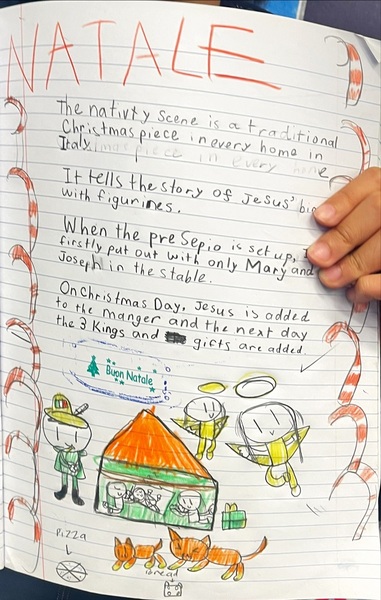 NATALE
The nativty scene is a traditional
Christmas piece in every home in
Italy.
It tells the story of Jesus'
with figurines.
When the presepio is set up,
firstly put out with only Mary and
Joseph in the stable.
On Christmas Day, Jesus is added
to the manger and the next day
the 3 Kings and gifts are added
Buon Natale
Pizza
bread